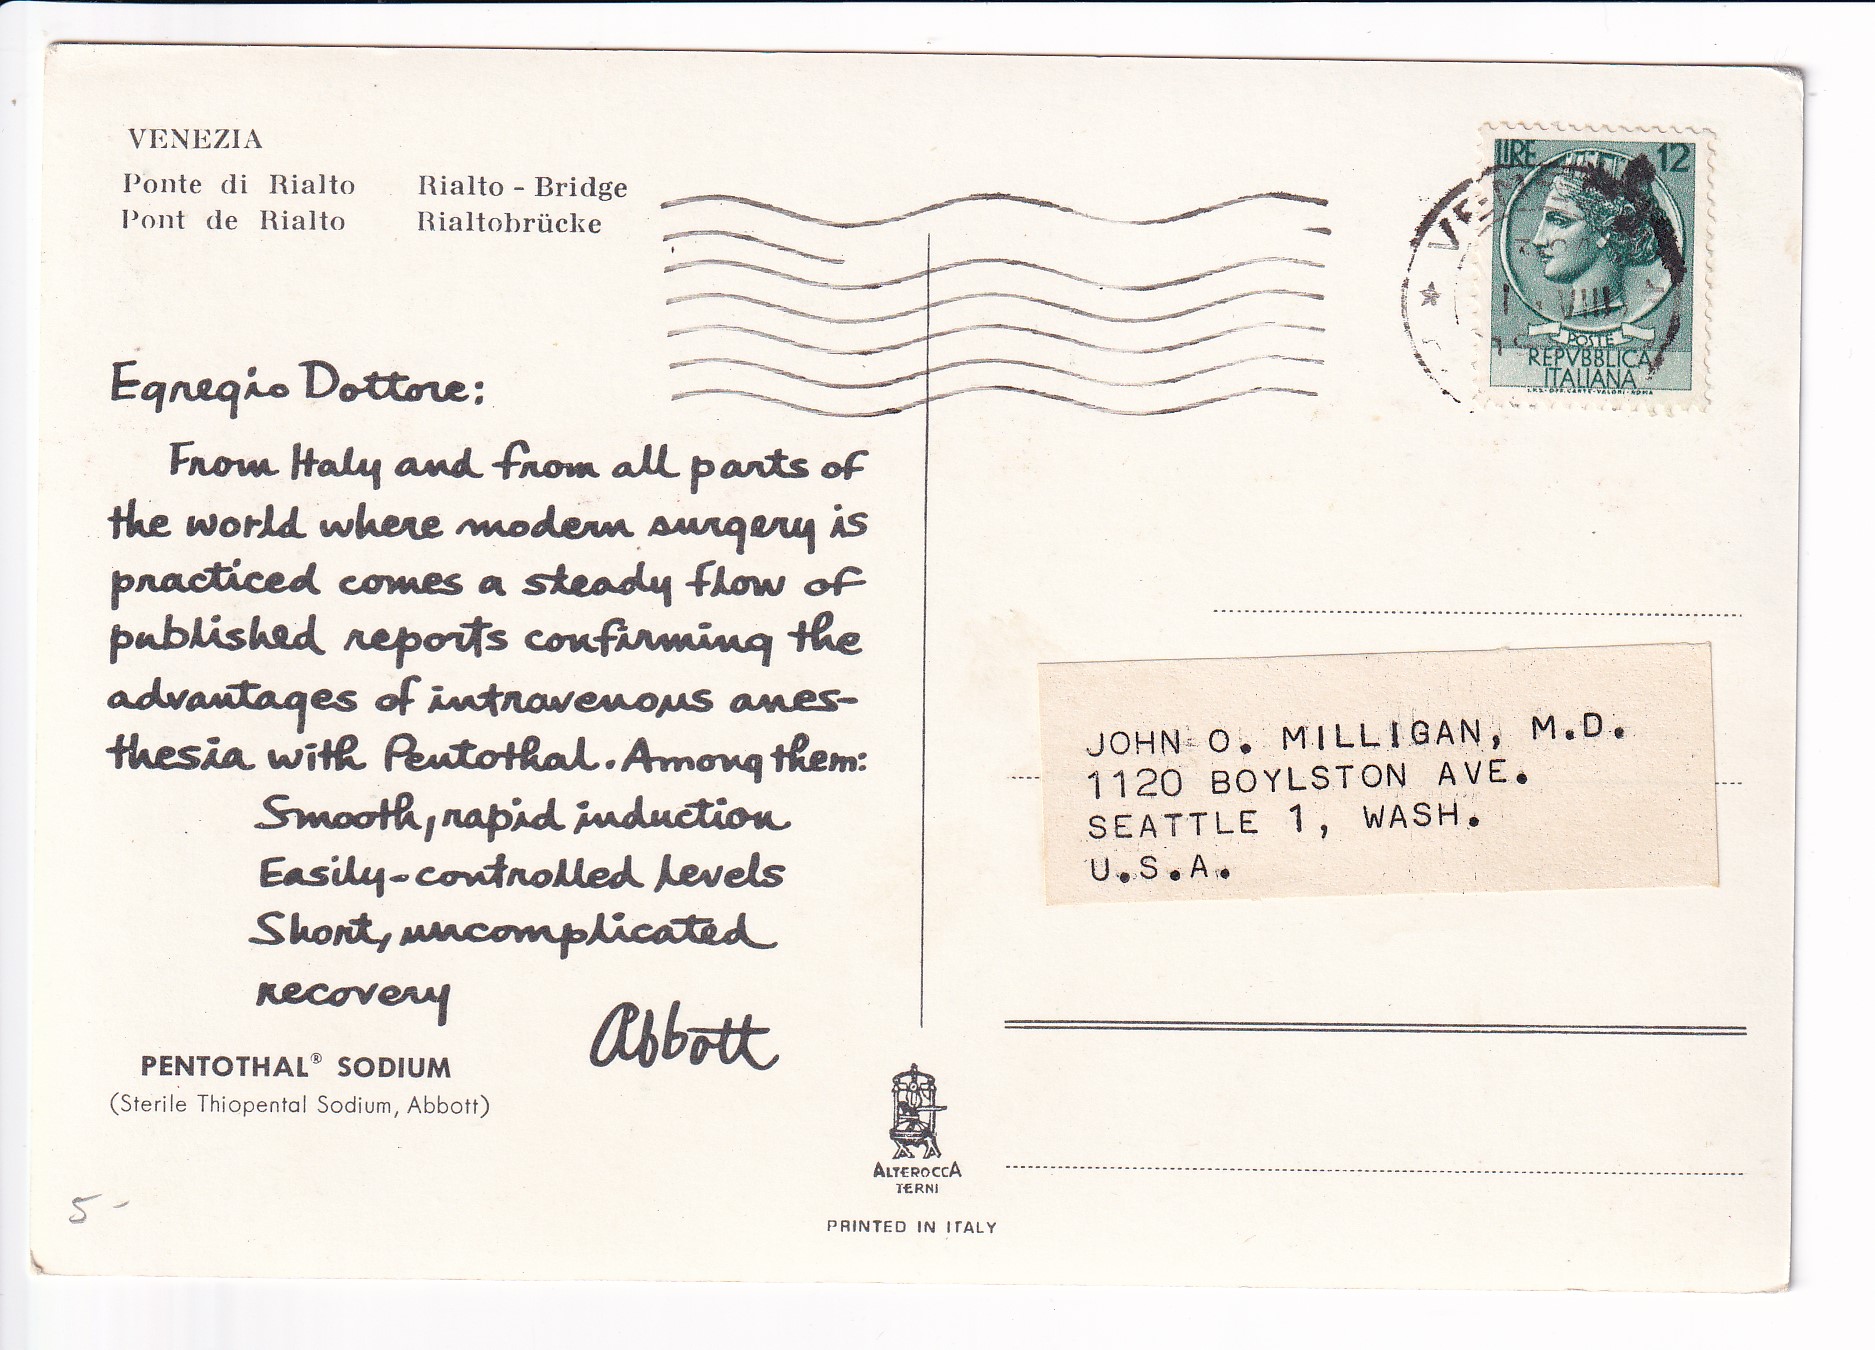 VENEZIA
Ponte di Rialto Rialto - Bridge
Pont de Rialto Rialtobrücke
Egregio Dottore:
From Italy and from all parts of
the world where modern surgery is
practiced comes a steady flow of
published reports confirming the
advantages of intravenous anes-
thesia with Pentothal. Among them:
Smooth, rapid induction
Easily-controlled levels
Short, uncomplicated
recovery
Abbott
PENTOTHAL® SODIUM
(Sterile Thiopental Sodium, Abbott)
5-
LIRE 12
POSTE
REPVBBLICA
ITALIANA
VIII
JOHN O. MILLIGAN, M.D.
1120 BOYLSTON AVE.
SEATTLE 1, WASH.
U.S.A.
ALTEROCCA
TERNI
PRINTED IN ITALY